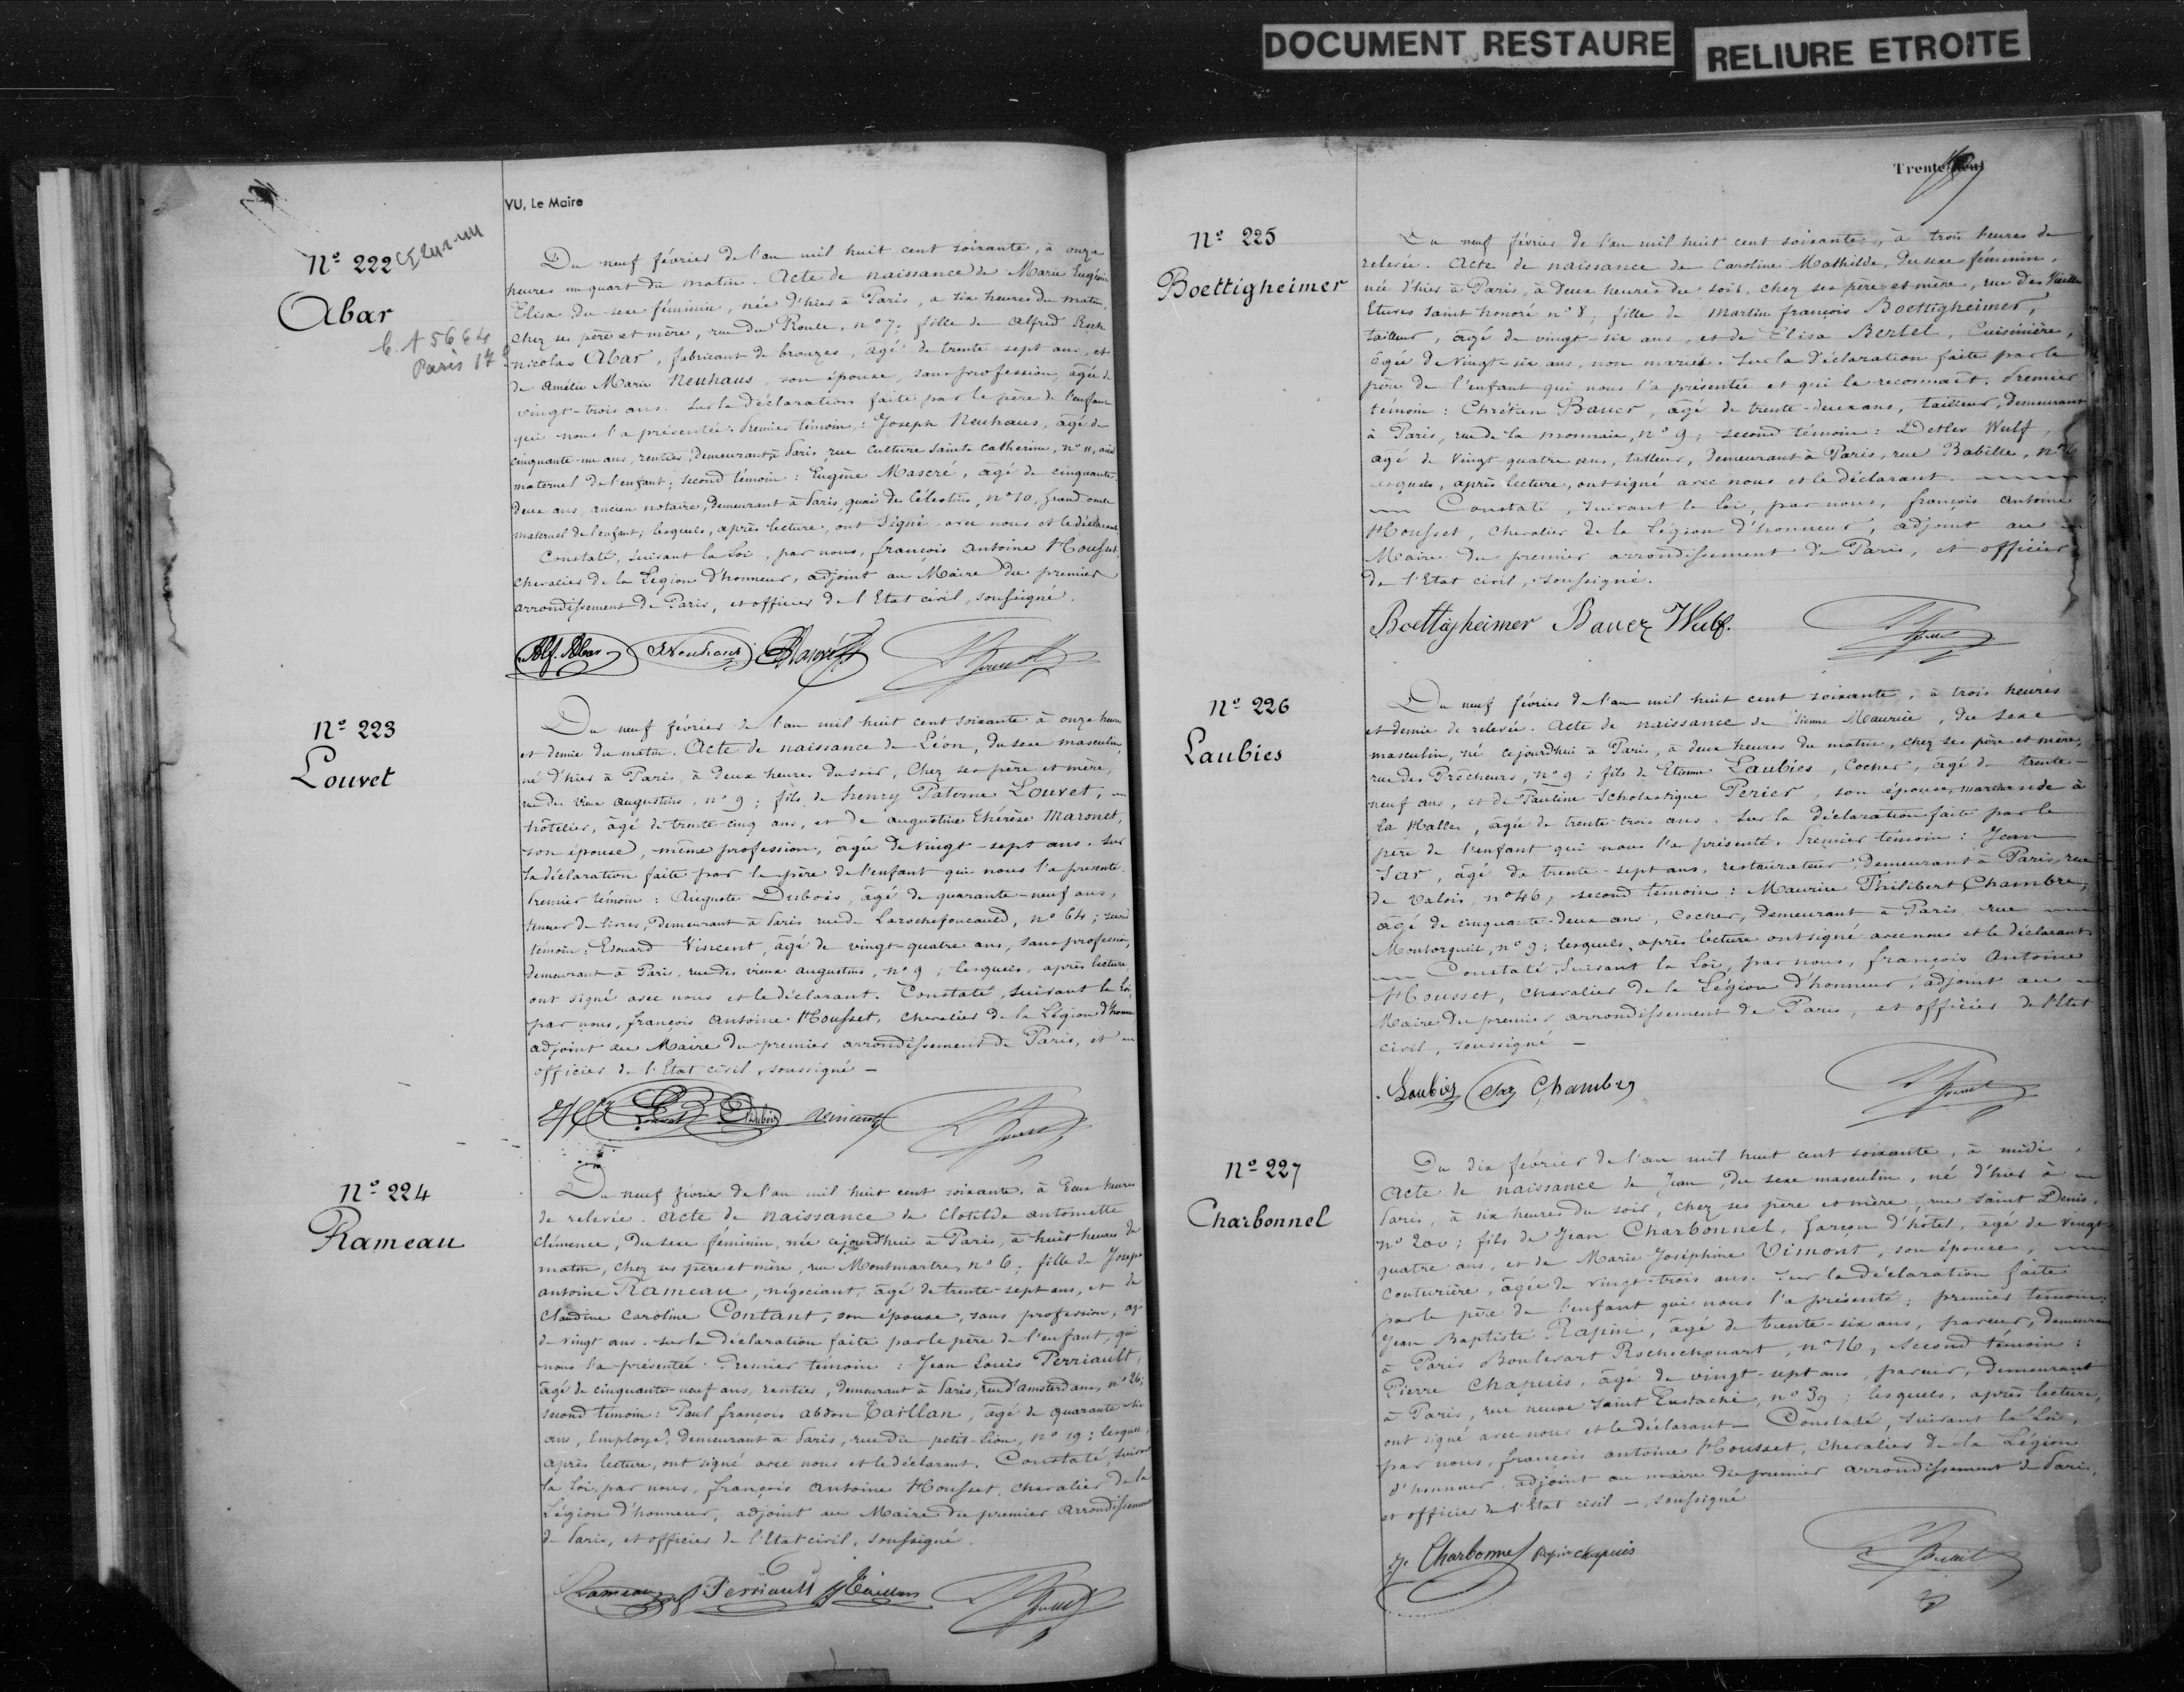 DOCUMENT RESTAURE
RELIURE ETROITE
VU, Le Maire
Nº 222
Abar
C. A 5664
Paris 17e
Du neuf février de l'an mil huit cent soixante, à onze
heures un quart du matin. Acte de naissance de Marie Eugénie
Elisa, du sexe féminin, née d'hier à Paris, à six heures du matin,
chez ses père et mère, rue du Roule, nº 7; fille de Alfred
nicolas Abar, fabricant de bronzes, âgé de trente-sept ans, et
de Amélie Marie Neuhaus, son épouse, sans profession, âgée de
vingt-trois ans. Sur la déclaration faite par le père de l'enfant
qui nous l'a présentée. Premier témoin: Joseph Neuhaus, âgé de
cinquante-un ans, rentier, demeurant à Paris, rue Culture Sainte Catherine, nº 11,
maternel de l'enfant; second témoin: Eugène Mascré, âgé de cinquante
deux ans, ancien notaire, demeurant à Paris, quai des Célestins, nº 10, grand oncle
maternel de l'enfant; lesquels, après lecture, ont signé avec nous et le déclarant
Constaté, suivant la Loi, par nous, françois Antoine Housset,
chevalier de la Légion d'honneur, adjoint au Maire du premier
arrondissement de Paris, et officier de l'Etat civil, soussigné.
Alf. Abar Neuhaus Mascré
Nº 223
Louvet
Du neuf février de l'an mil huit cent soixante à onze heures
et demie du matin. Acte de naissance de Léon, du sexe masculin,
né d'hier à Paris, à deux heures du soir, chez ses père et mère,
rue des vieux augustins, nº 9; fils de henry Paterne Louvet,
hôtelier, âgé de trente-cinq ans, et de augustine thérèse Maronet,
son épouse, même profession, âgée de vingt-sept ans. Sur
la déclaration faite par le père de l'enfant qui nous l'a présenté.
Premier témoin: Auguste Dubois, âgé de quarante-neuf ans,
teneur de livres, demeurant à Paris rue de Larochefoucauld, nº 64; second
témoin: Edouard Vincent, âgé de vingt-quatre ans, sans profession,
demeurant à Paris, rue des vieux augustins, nº 9; lesquels, après lecture
ont signé avec nous et le déclarant. Constaté, suivant la Loi,
par nous, françois Antoine Housset, chevalier de la Légion d'honneur
adjoint au Maire du premier arrondissement de Paris, et
officier de l'Etat civil, soussigné —
Louvet Dubois Vincent
Nº 224
Rameau
Du neuf février de l'an mil huit cent soixante, à deux heures
de relevée. Acte de naissance de Clotilde antoinette
clémence, du sexe féminin, née cejourd'hui à Paris, à huit heures du
matin, chez ses père et mère, rue Montmartre, nº 6; fille de Joseph
antoine Rameau, négociant, âgé de trente-sept ans, et de
Claudine Caroline Contant, son épouse, sans profession, âgée
de vingt ans. Sur la déclaration faite par le père de l'enfant, qui
nous l'a présentée. Premier témoin: Jean Louis Perriault,
âgé de cinquante-neuf ans, rentier, demeurant à Paris, rue d'amsterdam, nº 26;
second témoin: Paul françois abdon Taillan, âgé de quarante-six
ans, Employé, demeurant à Paris, rue du petit-Lion, nº 19; lesquels,
après lecture, ont signé avec nous et le déclarant. Constaté, suivant
la Loi, par nous, françois Antoine Housset, chevalier de la
Légion d'honneur, adjoint au Maire du premier arrondissement
de Paris, et officier de l'Etat civil, soussigné.
Rameau Perriault Taillan
Trente
Nº 225
Boettigheimer
Du neuf février de l'an mil huit cent soixante, à trois heures de
relevée. Acte de naissance de Caroline Mathilde, du sexe féminin,
née d'hier à Paris, à deux heures du soir, chez ses père et mère, rue des Vieilles
Etuves Saint honoré nº 8; fille de Martin françois Boettigheimer,
tailleur, âgé de vingt-six ans, et de Elisa Bertel, Cuisinière,
âgée de vingt-six ans, non mariés. Sur la déclaration faite par le
père de l'enfant qui nous l'a présentée et qui la reconnaît. Premier
témoin: Chrétien Bauer, âgé de trente-deux ans, tailleur, demeurant
à Paris, rue de la monnaie, nº 9; second témoin: Detlev Wulf,
âgé de vingt quatre ans, tailleur, demeurant à Paris, rue Babille, nº
lesquels, après lecture, ont signé avec nous et le déclarant.
Constaté, suivant la loi, par nous, françois Antoine
Housset, chevalier de la Légion d'honneur, adjoint au
Maire du premier arrondissement de Paris, et officier
de l'Etat civil, soussigné.
Boettigheimer Bauer Wulf.
Nº 226
Laubies
Du neuf février de l'an mil huit cent soixante, à trois heures
et demie de relevée. Acte de naissance de Etienne Maurice, du sexe
masculin, né cejourd'hui à Paris, à deux heures du matin, chez ses père et mère,
rue des Prêcheurs, nº 9; fils de Etienne Laubies, Cocher, âgé de trente-
neuf ans, et de Pauline Scholastique Perier, son épouse, marchande à
la Halle, âgée de trente-trois ans. Sur la déclaration faite par le
père de l'enfant qui nous l'a présenté. Premier témoin: Jean
Sar, âgé de trente-sept ans, restaurateur, demeurant à Paris, rue
de Valois, nº 46; second témoin: Maurice Philibert Chambre,
âgé de cinquante-deux ans, Cocher, demeurant à Paris rue
Montorgueil, nº 9; lesquels, après lecture ont signé avec nous et le déclarant.
Constaté, suivant la Loi, par nous, françois Antoine
Housset, chevalier de la Légion d'honneur, adjoint au
Maire du premier arrondissement de Paris, et officier de l'Etat
civil, soussigné —
Laubies Chambre
Nº 227
Charbonnel
Du dix février de l'an mil huit cent soixante, à midi,
Acte de naissance de Jean, du sexe masculin, né d'hier à
Paris, à six heures du soir, chez ses père et mère, rue Saint Denis,
nº 200; fils de Jean Charbonnel, garçon d'hôtel, âgé de vingt-
quatre ans, et de Marie Joséphine Vimont, son épouse,
couturière, âgée de vingt-trois ans. Sur la déclaration faite
par le père de l'enfant qui nous l'a présenté; premier témoin:
Jean Baptiste Rapin, âgé de trente-six ans, paveur, demeurant
à Paris Boulevart Rochechouart, nº 16; second témoin:
Pierre Chapuis, âgé de vingt-sept ans, paveur, demeurant
à Paris, rue neuve Saint Eustache, nº 39; lesquels, après lecture,
ont signé avec nous et le déclarant — Constaté, suivant la Loi,
par nous, françois antoine Housset, chevalier de la Légion
d'honneur, adjoint au maire du premier arrondissement de Paris,
et officier de l'Etat civil — soussigné
J. Charbonnel Rapin Chapuis